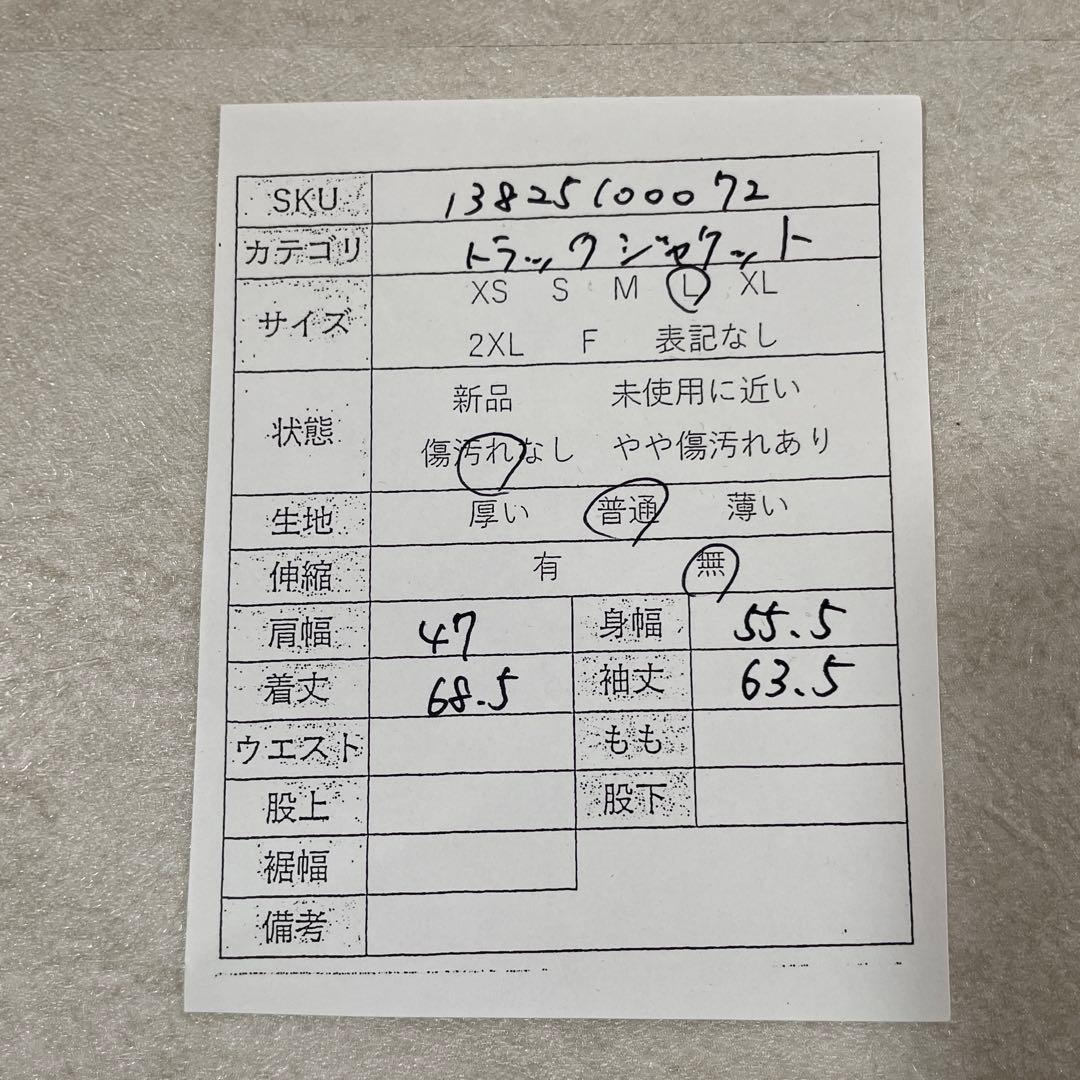 SKU 13825100072
カテゴリ トラックジャケット
サイズ XS S M L XL
2XL F 表記なし
状態 新品 未使用に近い
傷汚れなし やや傷汚れあり
生地 厚い 普通 薄い
伸縮 有 無
肩幅 47 身幅 55.5
着丈 68.5 袖丈 63.5
ウエスト もも
股上 股下
裾幅
備考